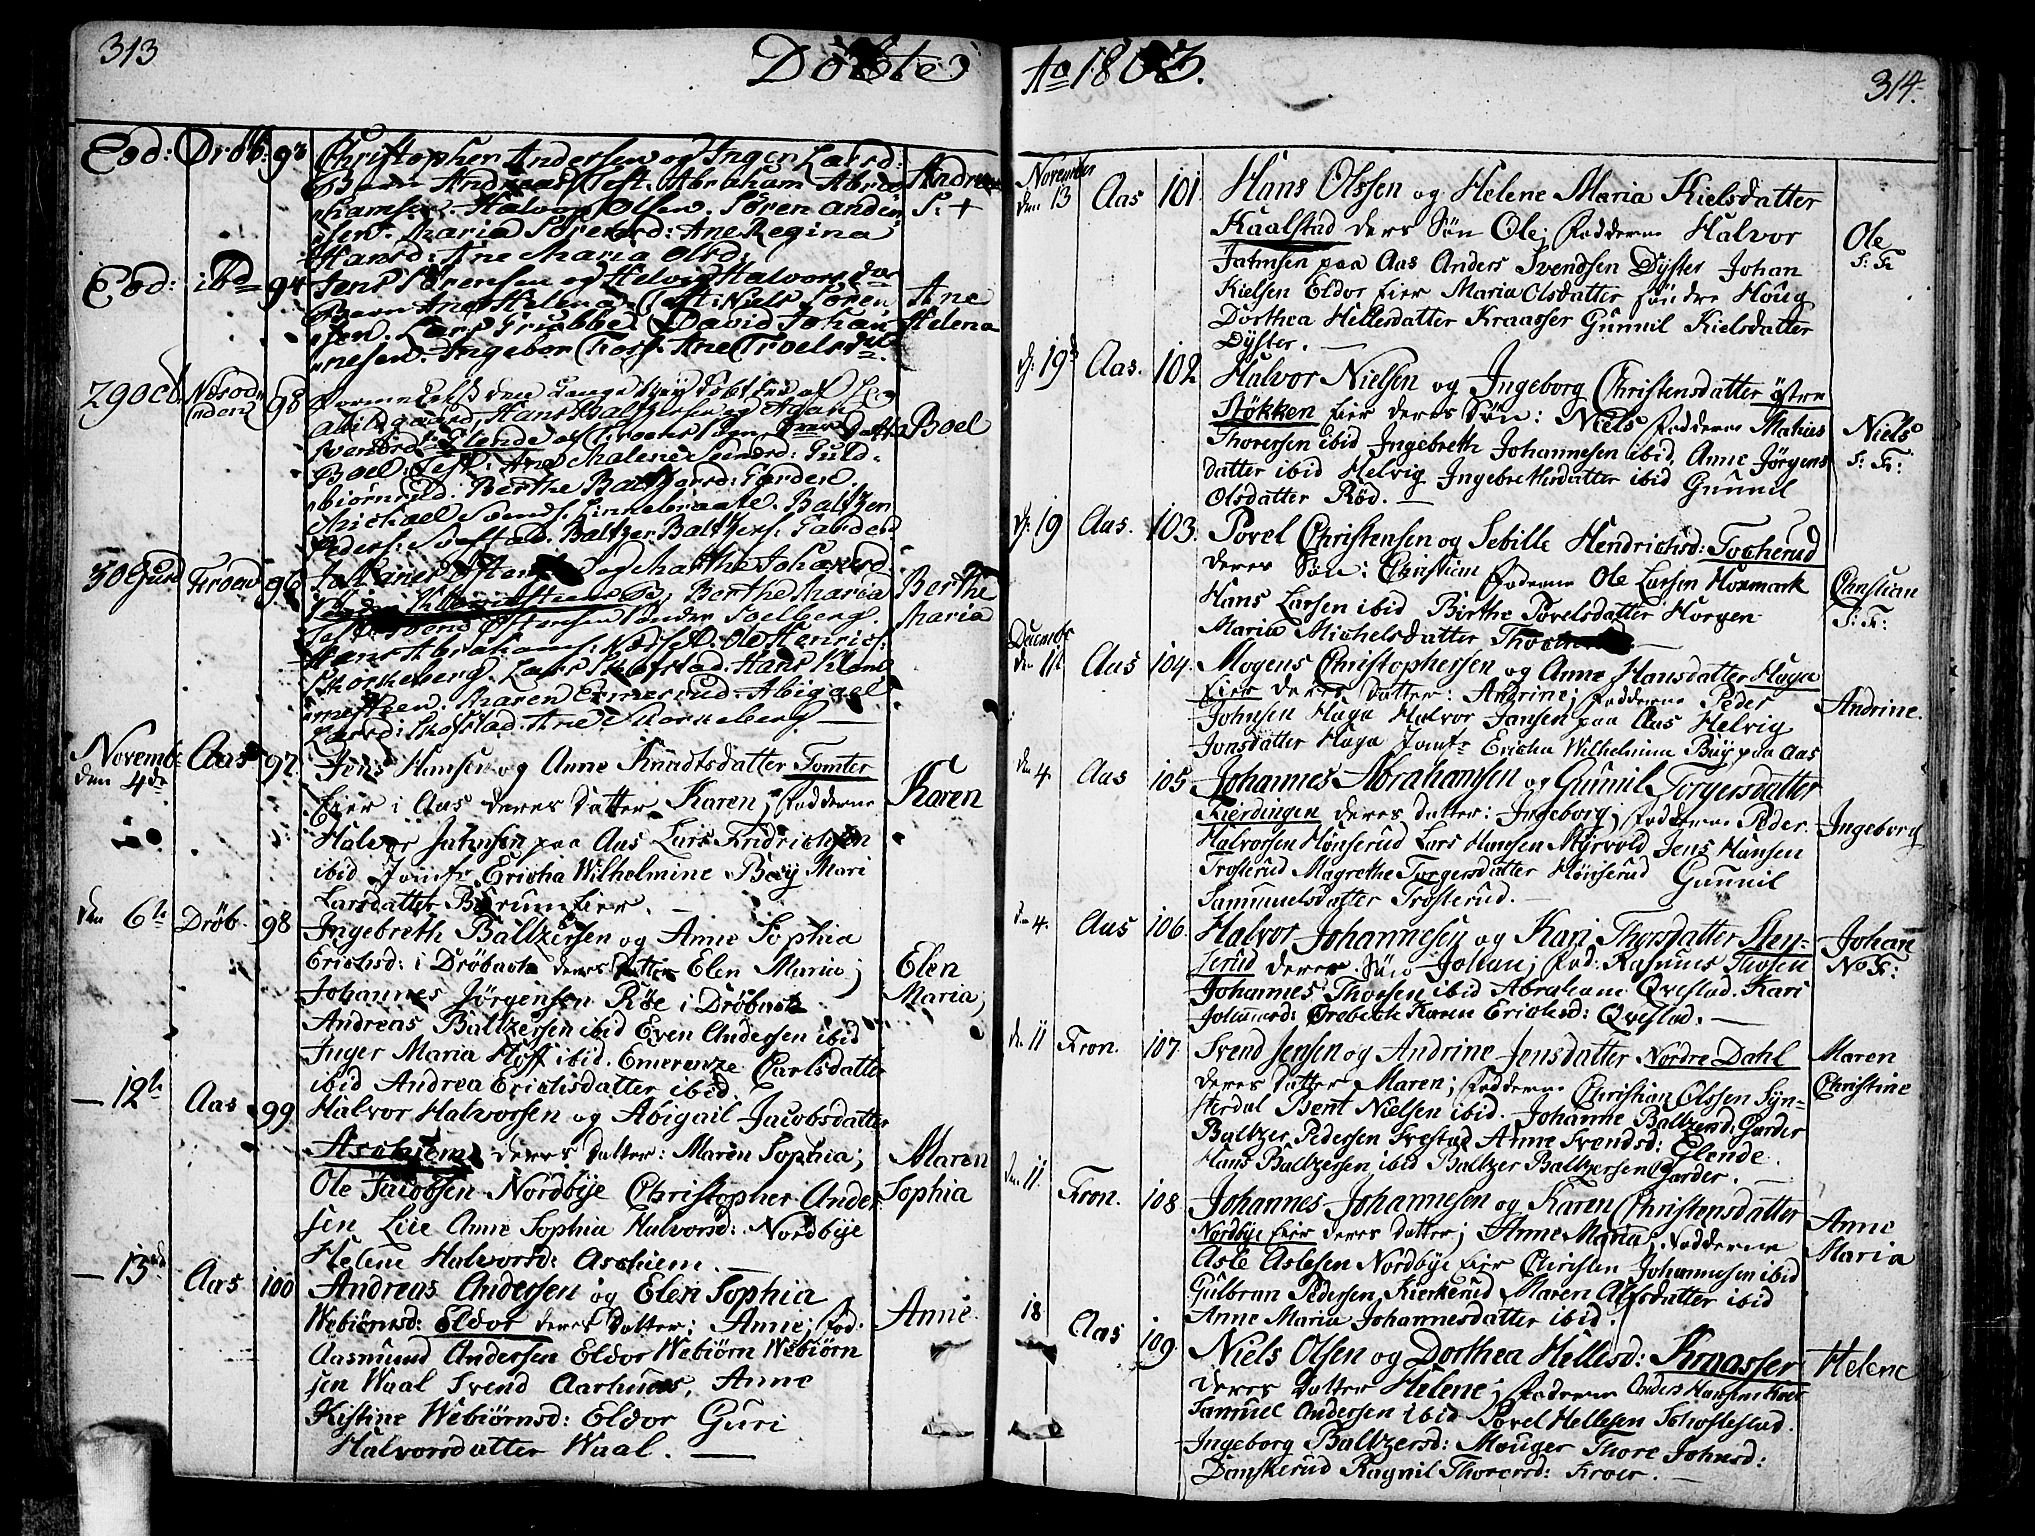 313
Döbte
Ao 1803.
314.
Eod: Dröb: 93 Christopher Andersen og Inger Larsd:
Barn Andreas Test. Abraham Abra
hamsen. Halvor Olsen. Sören Ander
sen. Maria Sörensd: Ane Regina
Hansd: Ane Maria Olsd:
Andreas
S: +
Eod: ibd 94 Jens Sörensen og Helvig Halvors dar
Barn Ane Helena. Test: Niels Sören
sen. Lars Grubbe. David Johan
nesen. Ingebor Foss. Ane Troelsd
Ane
Helena
29 Oct. Nesod
den
Hans Baltzersen og
Elende
Boel. Test: Ane Malene Svensd: Guld
biörnrud. Berthe Baltzersd: Garder
Michael Svends. Linnebraate. Baltzer
Peders: Svestad. Baltzer Baltzers: Garder
Boel
30 Kroer 96
og Marthe Johansd:
Berthe Maria
Solberg.
Hans Abrahams: Ole Henrichs:
Skorkeberg. Lars Skofstad. Hans
Maren Emmerud. Abigael
Larsd: Skofstad. Ane Skorkeberg
Berthe
Maria
Novemb:
den 4de Aas 97 Jens Hansen og Anne Knudtsdatter Tomter
Eier i Aas deres Datter Karen; Fadderne
Halvor Jahnsen paa Aas Lars Fridrichsen
ibid Jomfr Ericha Wilhelmine Böy Mari
Larsdatter Eier.
Karen
den 6te Dröb. 98 Ingebreth Baltzersen og Anne Sophia
Erichsd: i Dröback deres Datter Elen Maria;
Johannes Jörgensen Röe i Dröback
Andreas Baltzersen ibid Even Andersen ibid
Inger Maria Hoff ibid. Emerenze Carlsdatter
ibid Andrea Erichsdatter ibid.
Elen
Maria;
12te Aas 99 Halvor Halvorsen og Abigail Jacobsdatter
Aschiem deres Datter: Maren Sophia;
Ole Jacobsen Nordbÿe Christopher Ander
sen Lie Anne Sophia Halvorsd: Nordbÿe
Helene Halvorsd: Aschiem.
Maren
Sophia
13de Aas 100 Andreas Andersen og Elen Sophia
Webiörnsd: Eldor deres Datter; Anne; Fad:
Aasmund Andersen Eldor Webiörn Webiörn
sen Waal Svend Aarhuus, Anne
Kistine Webiörnsd: Eldor Guri
Halvorsdatter Waal.
Anne.
November
den 13 Aas 101 Hans Olssen og Helene Maria Kielsdatter
Kaalstad deres Sön Ole; Fadderne Halvor
Jahnsen paa Aas Anders Svendsen Dÿster Johan
Kielsen Eldor Eier Maria Olsdatter söndre Houg
Dorthea Hellesdatter Kraasser Gunnil Kielsdatter
Dÿster.
Ole
S: F:
d: 19de Aas. 102 Halvor Nielsen og Ingeborg Christensdatter östre
Stökken Eier deres Sön: Niels Fadderne Mathias
Thorersen ibid Ingebreth Johannesen ibid, Anne Jörgens
datter ibid Helvig Ingebrethsdatter ibid Gunnil
Olsdatter Röd.
Niels
S: F:
d: 19 Aas. 103. Povel Christensen og Sebille Hendrichsd: Tocherud
deres Sön: Christian Fadderne Ole Larsen Hormark
Hans Larsen ibid Birthe Povelsdatter Horgen
Maria Michelsdatter
Christian
S: F:
Decembr
den Aas 104. Mogens Christophersen og Anne Hansdatter Haga
Eier deres Datter: Andrine; Fadderne Peder
Johnsen Haga Halvor Jansen paa Aas Helvig
Jonsdatter Haga Jomfr Ericha Wilhelmina Böy paa Aas
Andrine.
den 4. Aas 105 Johannes Abrahamsen og Gunnil Torgersdatter
Kierdingen deres Datter: Ingeborg; Fadderne Peder
Halvorsen Hönserud Lars Hansen Myrvold Jens Hansen
Trosterud Magrethe Torgersdatter Hönserud Gunnil
Samuelsdatter Trosterud.
Ingeborg
den 4. Aas 106. Halvor Johannesen og Kari Thorsdatter Sten-
serud deres Sön Johan; Fad: Rasmus Thosen
Johannes Thorsen ibid Abraham Qvestad. Kari
Karen Erichsd: Qvestad.
Johan
N: F:
d: 11 Kron. 107. Svend Jensen og Andrine Jensdatter Nordre Dahl
deres Datter Maren; Fadderne Christian Olssen Syn-
sterdal Bent Nielsen ibid. Johanne Baltzersd: Garder
Baltzer Pedersen Svestad Anne Svendsd: Elende.
Hans Baltzersen ibid Baltzer Baltzersen Garder.
Maren
Christine
den 11. Kron. 108 Johannes Johannesen og Karen Christensdatter
Nordbye Eier deres Datter; Anne Maria; Fadderne
Asle Aslesen Nordbÿe Eier Christen Johannesen ibid
Gulbran Pedersen Kierkerud Maren Olsdatter ibid
Anne Maria Johannesdatter ibid.
Anne
Maria
18 Aas 109 Niels Olsen og Dorthea Hellesd: Kraasser
deres Datter Helene; Fadderne Anders Hansen Kroer
Samuel Andersen ibid Povel Hellesen
Ingeborg Baltzersd: Mouger Thore Johnsd:
Danskerud Ragnil Thorersd: Kroer.
Helene